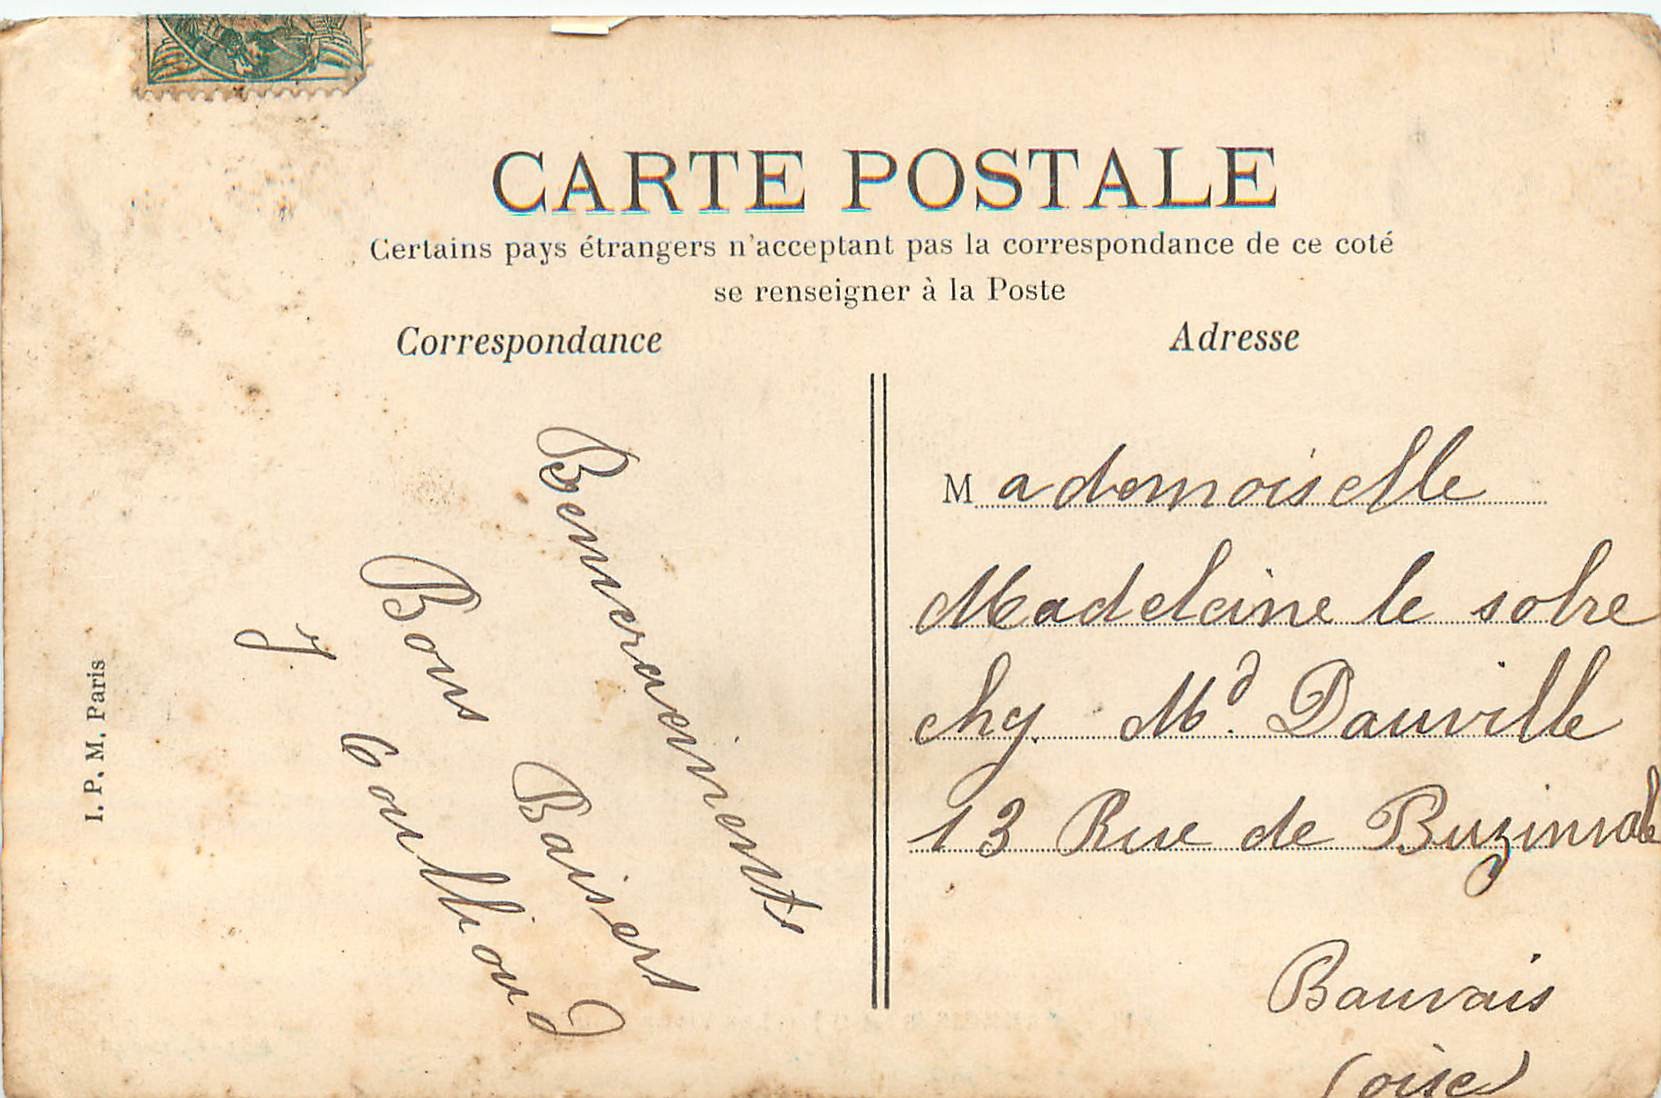 CARTE POSTALE
Certains pays étrangers n'acceptant pas la correspondance de ce coté
se renseigner à la Poste
Correspondance
Adresse
Bons Baisers
J
Mademoiselle
Madeleine le sobre
chy. Md. Dauville
13 Rue de
Bauvais
(oise)
I. P. M. Paris